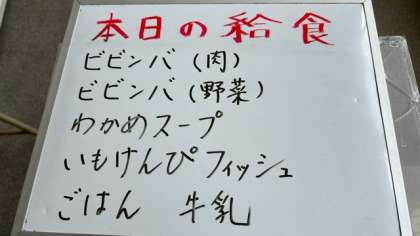 本日の給食
ビビンバ(肉)
ビビンバ(野菜)
わかめスープ
いもけんぴフィッシュ
ごはん 牛乳